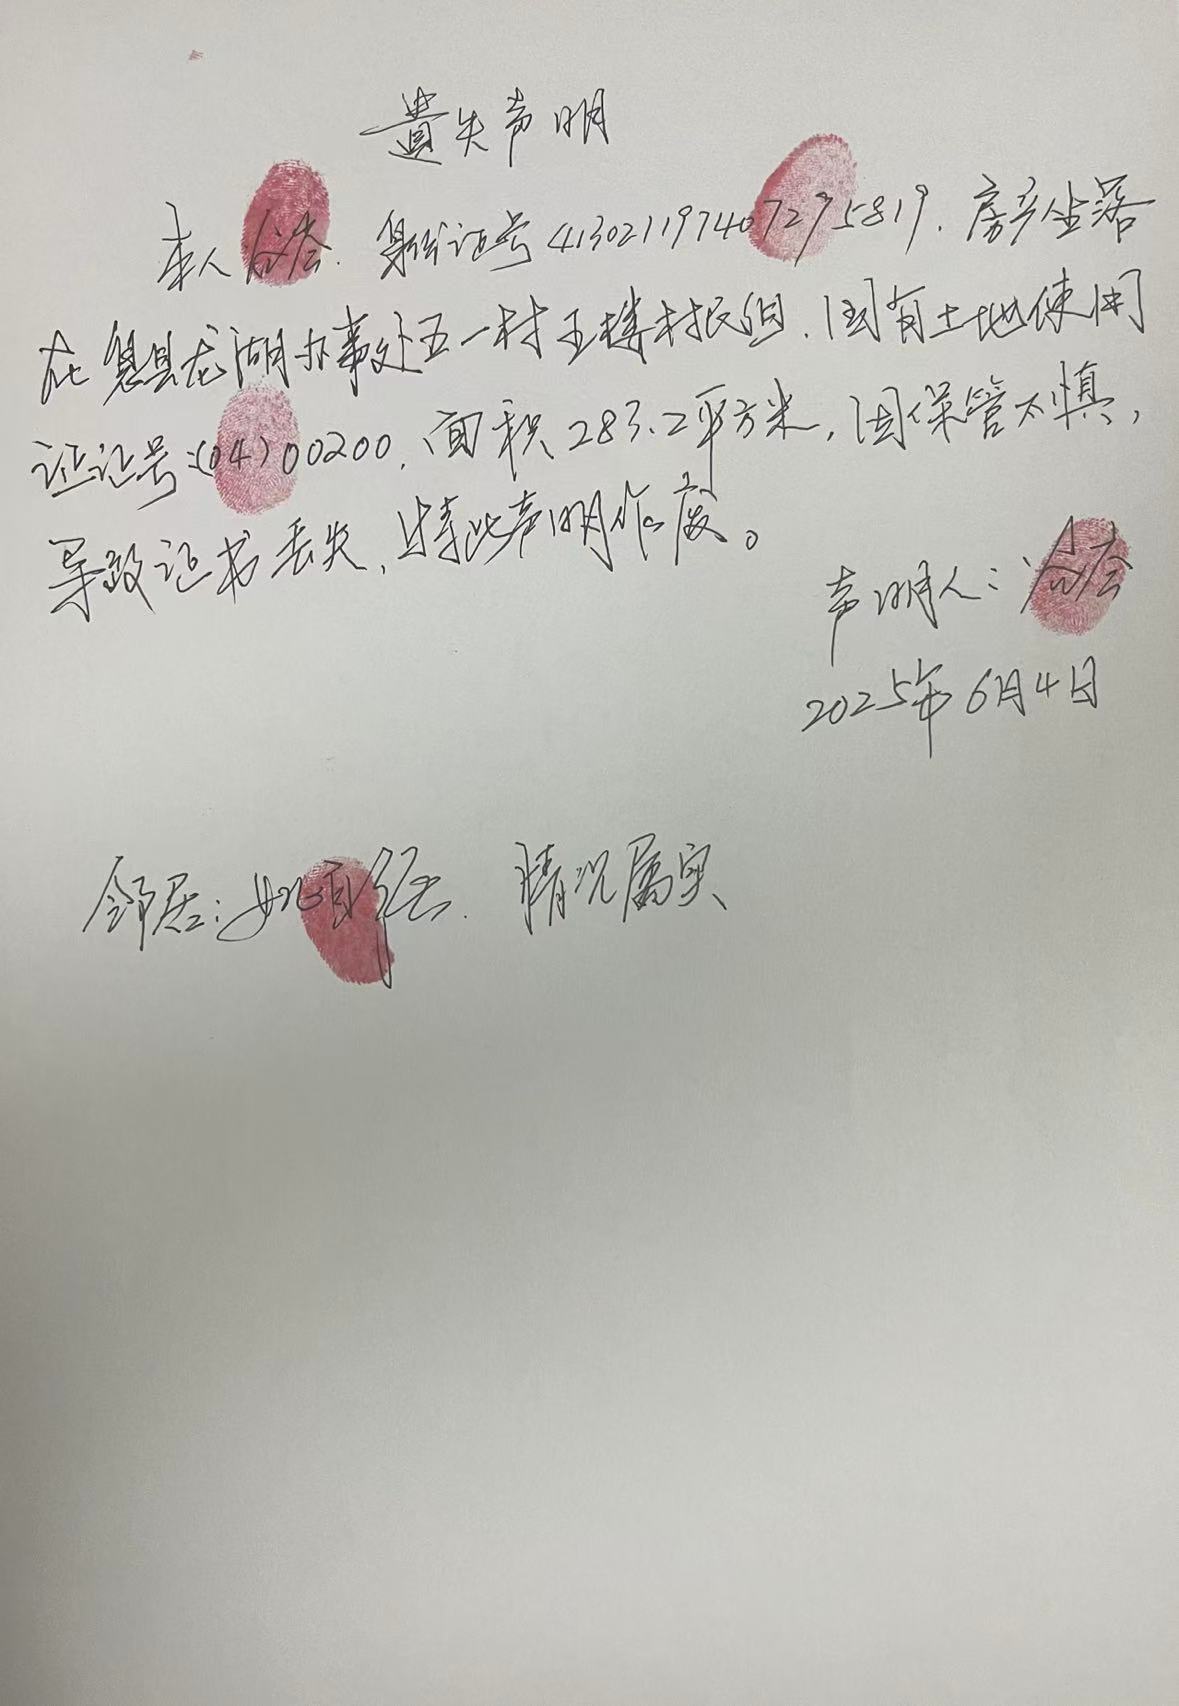 遗失声明
本人 身份证号413021197407295819.房产坐落
在息县龙湖办事处五一村王楼村民组.国有土地使用
证证号:(04)00200.面积283.2平方米,因保管不慎,
导致证书丢失,特此声明作废。
声明人:
2025年6月4日
邻居: 情况属实